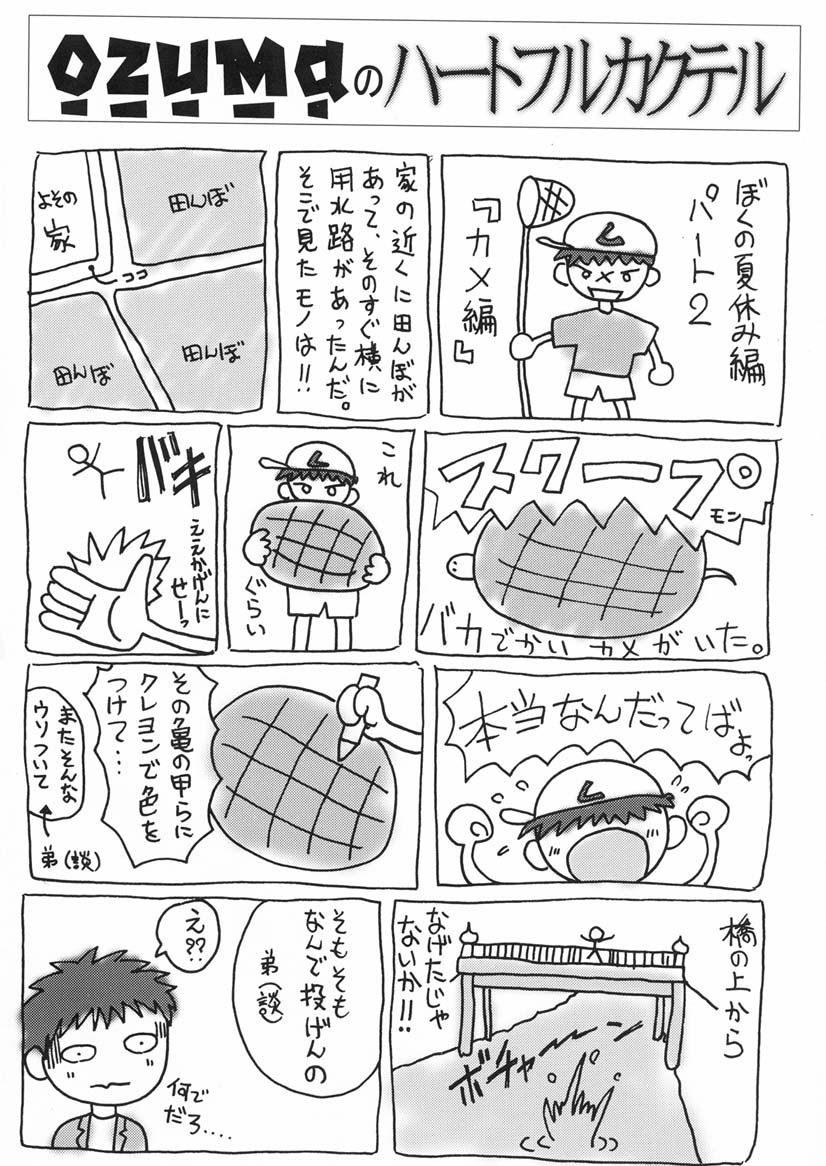 OZUMaのハートフルカクテル
ぼくの夏休み編
パート2
『カメ編』
家の近くに田んぼが
あって、そのすぐ横に
用水路があったんだ。
そこで見たモノは!!
田んぼ
よその
家
ココ
田んぼ
田んぼ
スクープ
モン
バカでかいカメがいた。
これ
ぐらい
バキ
ええかげんに
せーっ
本当なんだってばよっ
その亀の甲らに
クレヨンで色を
つけて・・・
またそんな
ウソついて
弟(談)
橋の上から
なげたじゃ
ないか!!
ボチャーーン
そもそも
なんで投げんの
弟(談)
え??
何で
だろ....